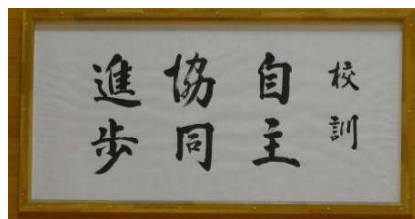 校訓
自主
協同
進歩